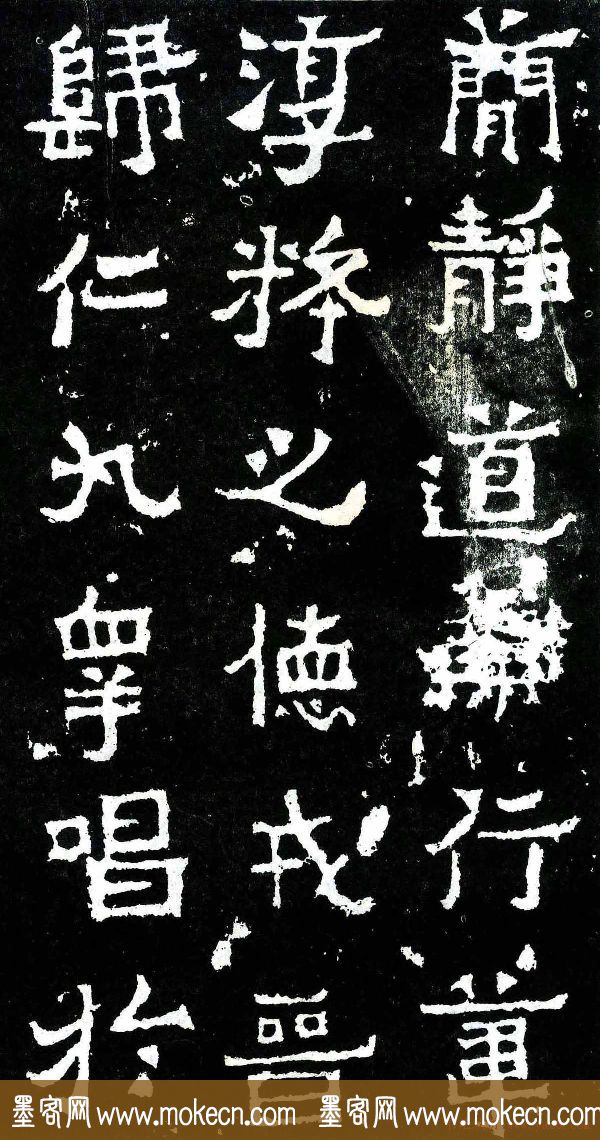 簡靜道兼行葦
淳粹之德戎晉
歸仁九皋唱於
墨客网 www.mokecn.com 墨客网 www.mokecn.com